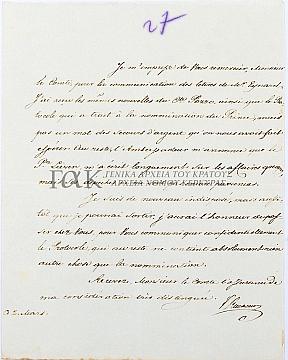 27
Je m'empresse de Vous remercier, Monsieur
le Comte, pour la communication des lettres de Mr. Eynard.
J'ai reçu les mêmes nouvelles du Cte Pozzo, ainsi que le Pro-
tocole qui a trait à la nomination du Prince, mais
pas un mot des secours d'argent qu'on nous avait fait
espérer. Du reste, l'Ambassadeur m'annonce que le
Pce Lieven m'a écrit longuement sur les affaires
ΓΑΚ ΓΕΝΙΚΑ ΑΡΧΕΙΑ ΤΟΥ ΚΡΑΤΟΥΣ
ΑΡΧΕΙΑ ΝΟΜΟΥ ΚΕΡΚΥΡΑΣ
Je suis de nouveau indisposé, mais aussi-
tôt que je pourrai sortir, j'aurai l'honneur de pas-
ser chez Vous, pour Vous communiquer confidentiellement
le Protocole, qui au reste ne contient absolument rien
autre chose que la nomination.
Recevez Monsieur le Comte l'assurance de
ma considération très distinguée.
Mars.